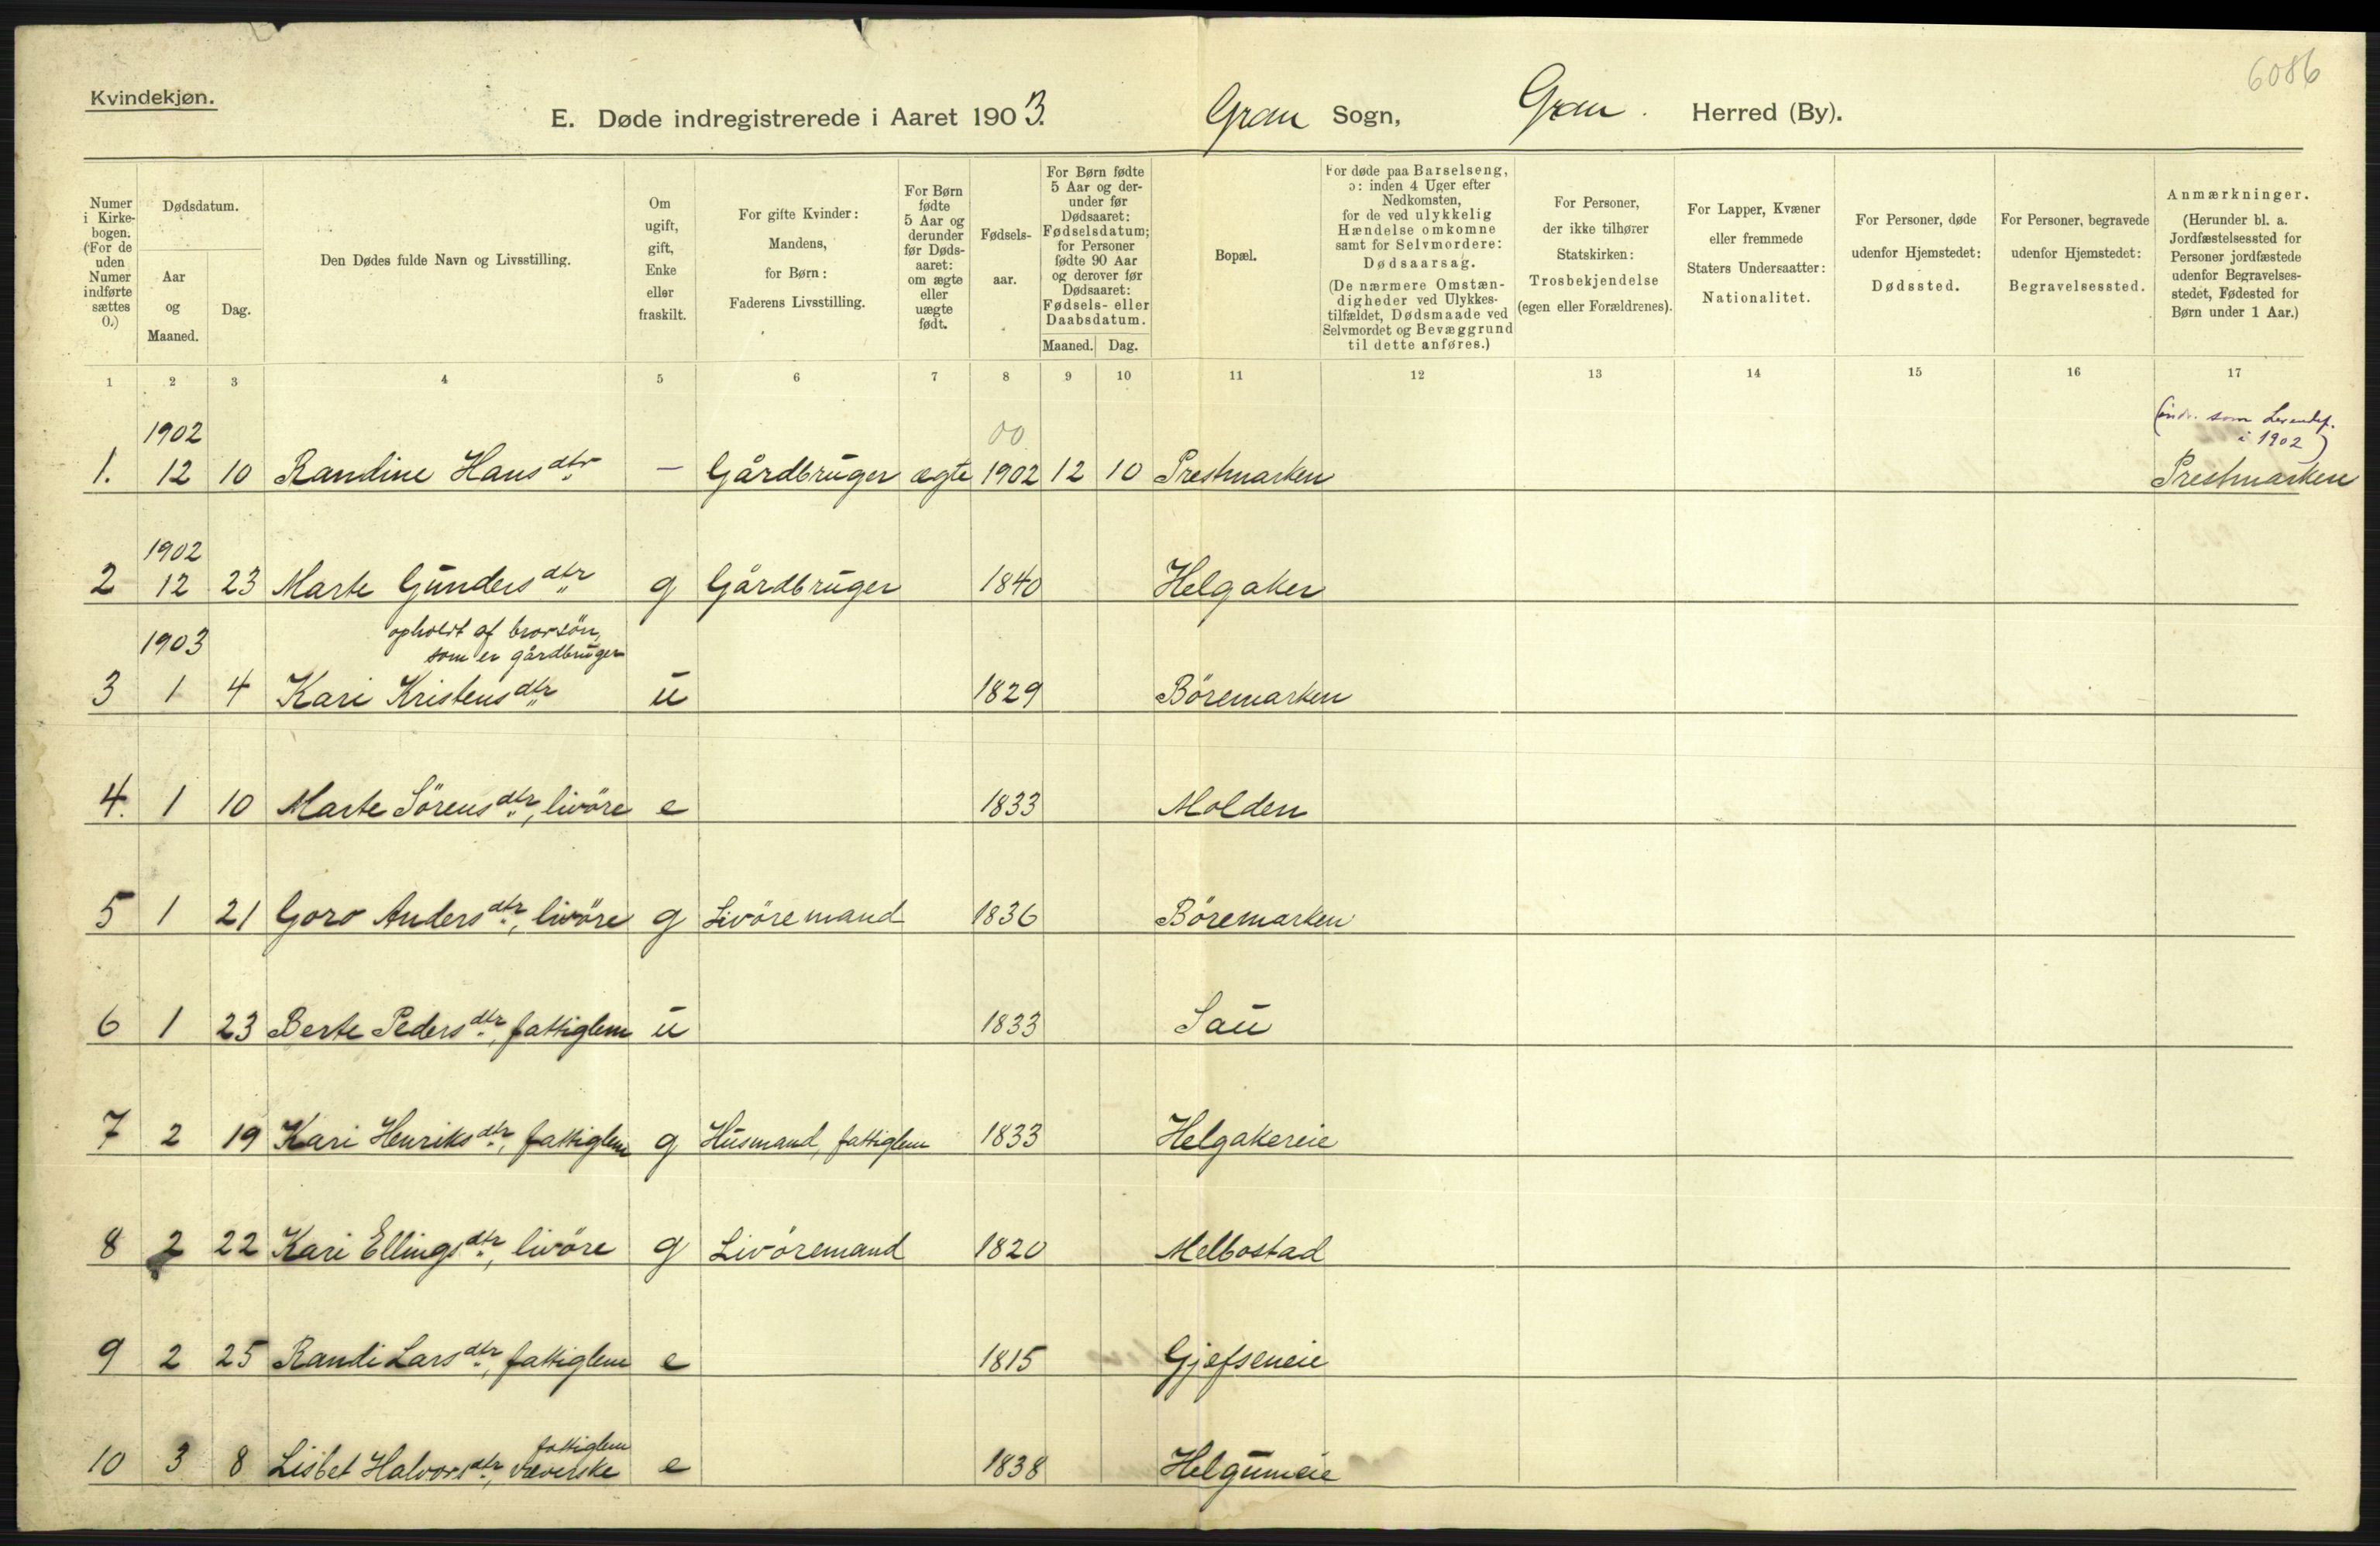 6086
Kvindekjøn.
E. Døde indregistrerede i Aaret 1903. Gran Sogn, Gran. Herred (By).
Numer i Kirke-bogen. (For de uden Numer indførte sættes 0.)
Dødsdatum.
Aar og Maaned.
Dag.
Den Dødes fulde Navn og Livsstilling.
Om ugift, gift, Enke eller fraskilt.
For gifte Kvinder: Mandens, for Børn: Faderens Livsstilling.
For Børn fødte 5 Aar og derunder før Døds-aaret: om ægte eller uægte født.
Fødsels-aar.
For Børn fødte 5 Aar og der-under før Dødsaaret: Fødselsdatum; for Personer fødte 90 Aar og derover før Dødsaaret: Fødsels- eller Daabsdatum.
Maaned. Dag.
Bopæl.
For døde paa Barselseng, ɔ: inden 4 Uger efter Nedkomsten, for de ved ulykkelig Hændelse omkomne samt for Selvmordere: Dødsaarsag. (De nærmere Omstæn-digheder ved Ulykkes-tilfældet, Dødsmaade ved Selvmordet og Bevæggrund til dette anføres.)
For Personer, der ikke tilhører Statskirken: Trosbekjendelse (egen eller Forældrenes).
For Lapper, Kvæner eller fremmede Staters Undersaatter: Nationalitet.
For Personer, døde udenfor Hjemstedet: Dødssted.
For Personer, begravede udenfor Hjemstedet: Begravelsessted.
Anmærkninger. (Herunder bl. a. Jordfæstelsessted for Personer jordfæstede udenfor Begravelses-stedet, Fødested for Børn under 1 Aar.)
1 2 3 4 5 6 7 8 9 10 11 12 13 14 15 16 17
1902 00 som i 1902)
1. 12 10 Randine Hansdtr. – Gårdbruger ægte 1902 12 10 Prestmarken Prestmarken
1902
2 12 23 Marte Gundersdtr g Gårdbruger 1840 Helgaker
1903 opholdt af brorsön,
som er gårdbruger
3 1 4 Kari Kristensdtr u 1829 Böremarken
4. 1 10 Marte Sörensdtr., livöre e 1833 Molden
5 1 21 Goro Andersdtr., livöre g Livöremand 1836 Böremarken
6 1 23 Berte Pedersdtr., fattiglem u 1833 Sau
7 2 19 Kari Henriksdtr., fattiglem g Husmand, fattiglem 1833 Helgakereie
8 2 22 Kari Ellingsdtr., livöre g Livöremand 1820 Melbostad
9 2 25 Randi Larsdtr., fattiglem e 1815 Gjefseneie
fattiglem
10 3 8 Lisbet Halvorsdtr., væverske e 1838 Helgumeie